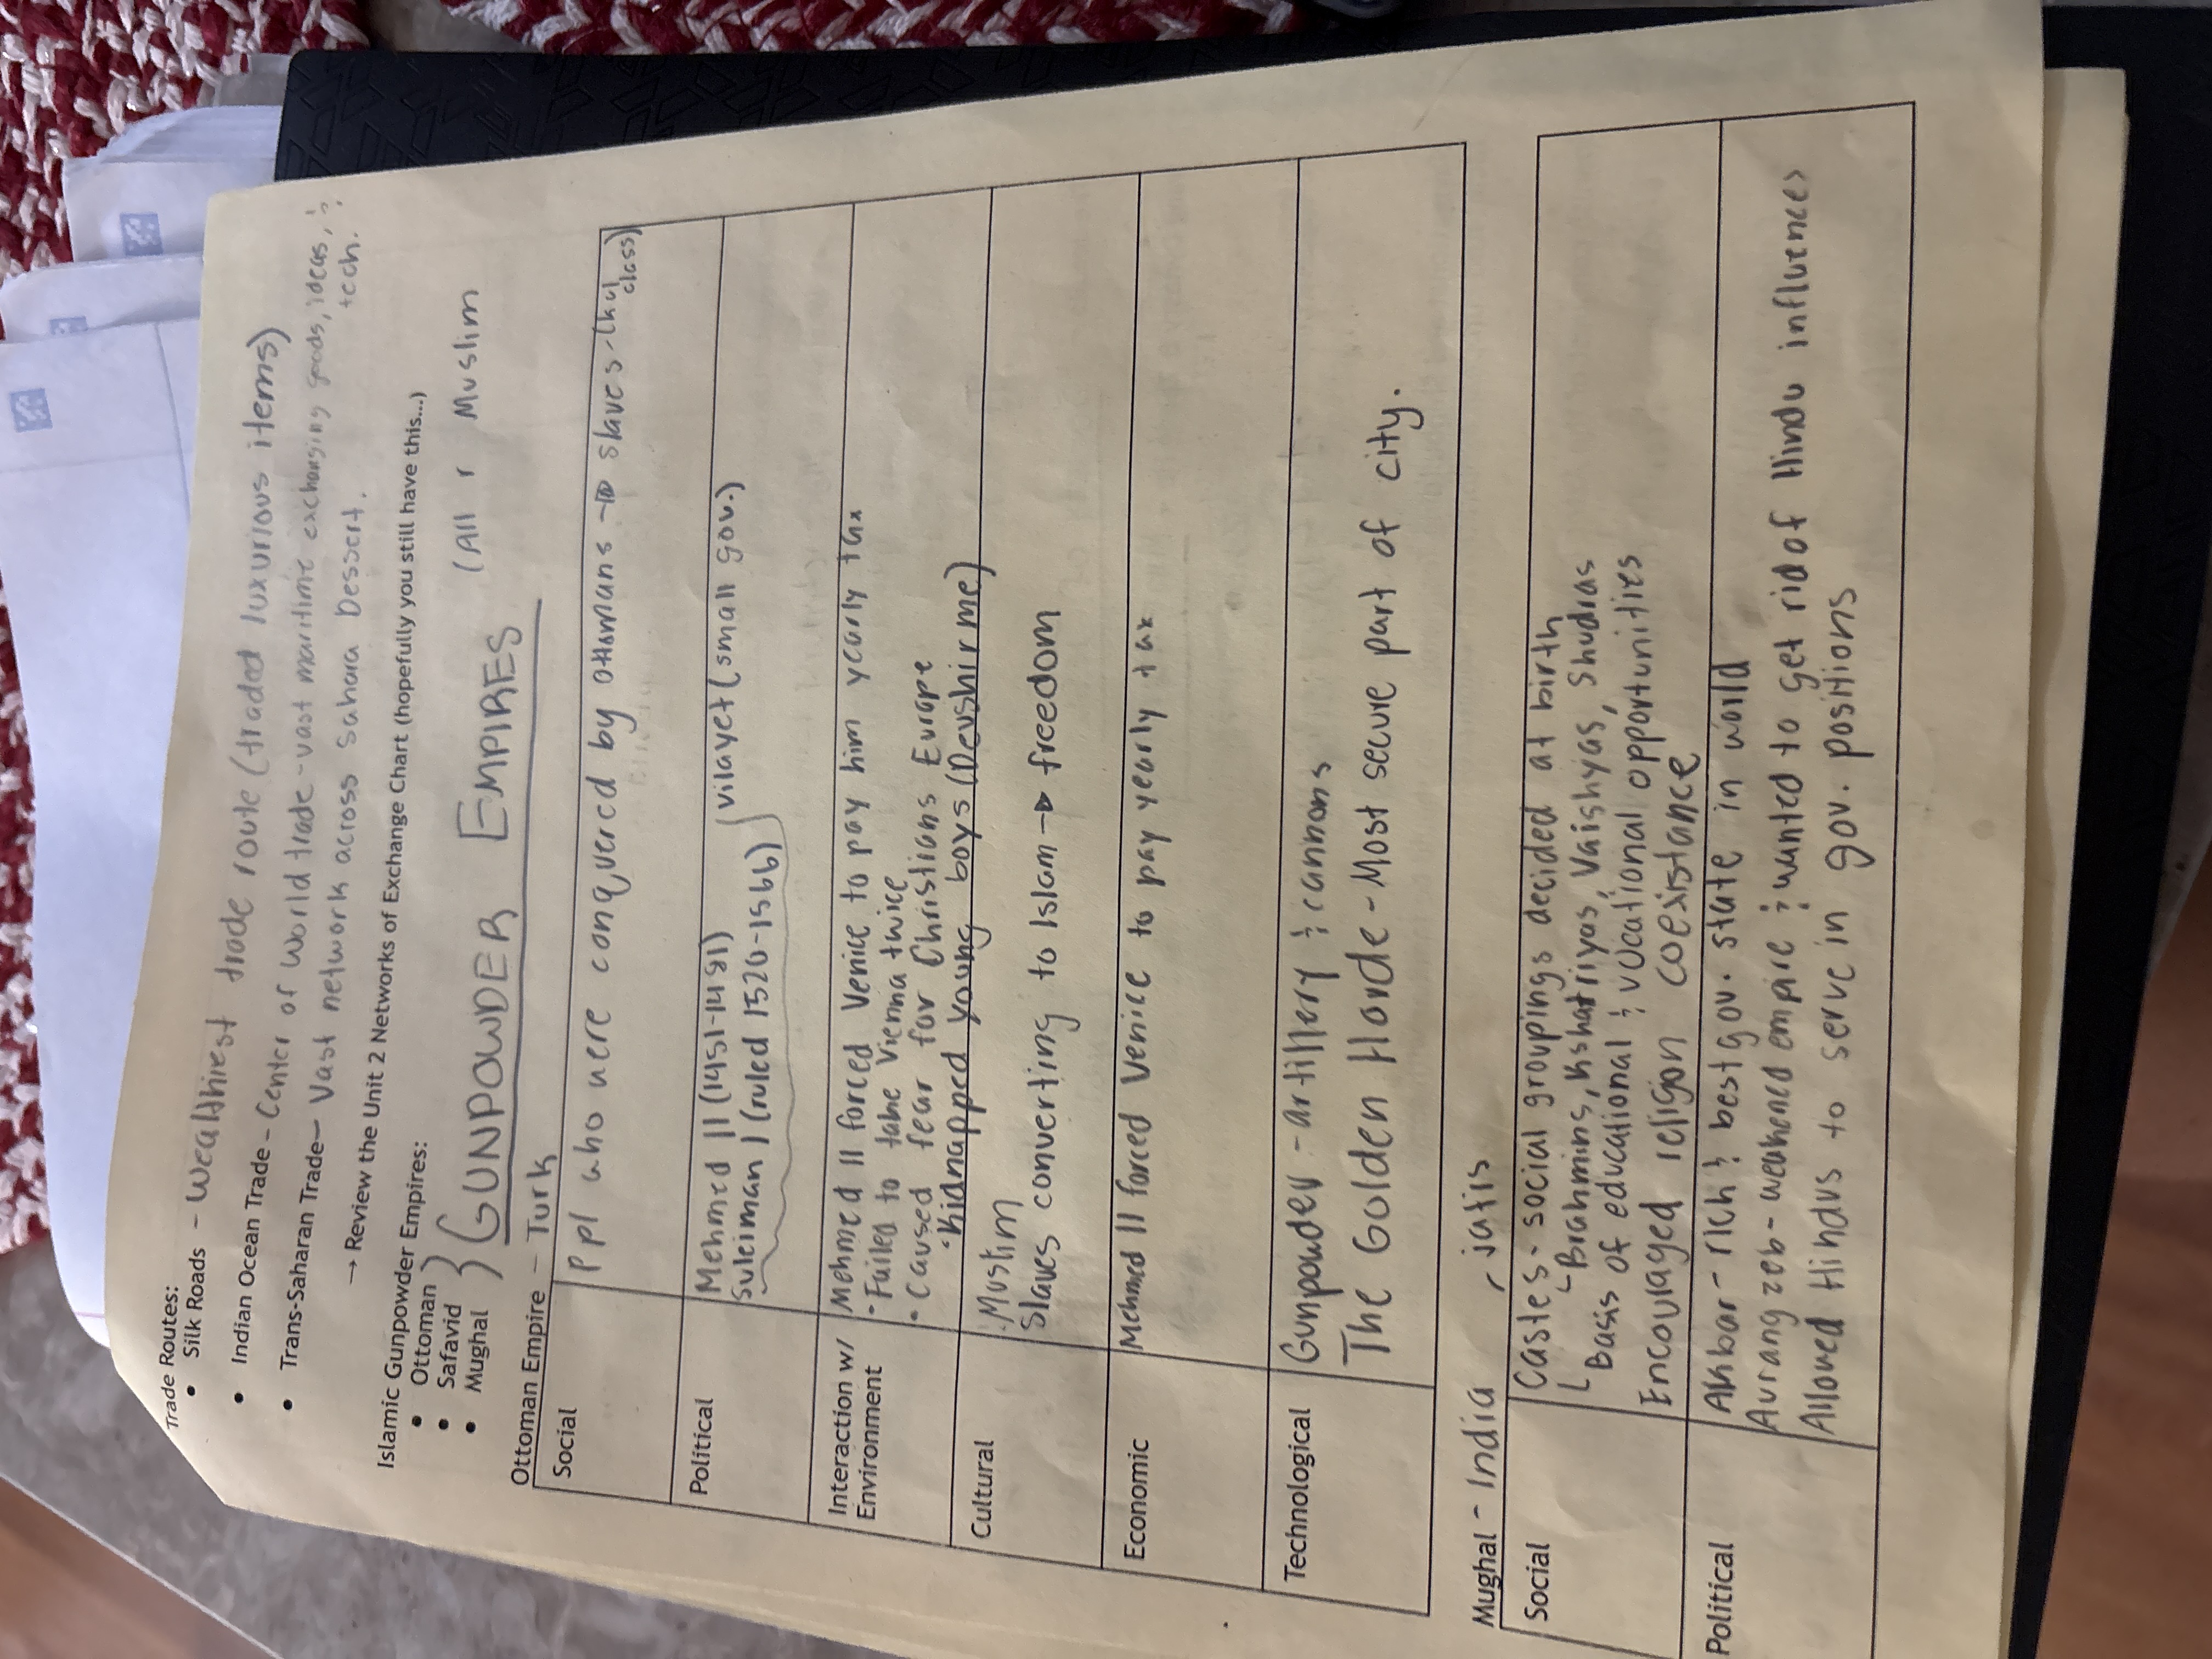 Trade Routes:
• Silk Roads - Wealthiest trade route (traded luxurious items)
• Indian Ocean Trade - Center of World trade - vast maritime exchanging goods, ideas, & tech.
• Trans-Saharan Trade - Vast network across Sahara Dessert.
→ Review the Unit 2 Networks of Exchange Chart (hopefully you still have this...)
Islamic Gunpowder Empires:
• Ottoman
• Safavid
• Mughal
GUNPOWDER EMPIRES (All r Muslim
Ottoman Empire - Turk
Social
Ppl who were conquered by ottomans → slaves - (kul class)
Political
Mehmed II (1451-1481)
Suleiman I (ruled 1520-1566) vilayet (small gov.)
Interaction w/ Environment
Mehmed II forced Venice to pay him yearly tax
• Failed to take Vienna twice
• Caused fear for Christians Europe
• kidnapped young boys (Devshirme)
Cultural
Muslim
Slaves converting to Islam → freedom
Economic
Mehmed II forced Venice to pay yearly tax
Technological
Gunpowder - artillery & cannons
The Golden Horde - Most secure part of city.
Mughal - India - jatis
Social
Castes - social groupings decided at birth
Brahmins, Kshatriyas, Vaishyas, Shudras
Basis of educational & vocational opportunities
Encouraged religon coexistance
Political
Akbar - rich & best gov. state in world
Aurangzeb - weakened empire & wanted to get rid of Hindu influences
Allowed Hindus to serve in gov. positions